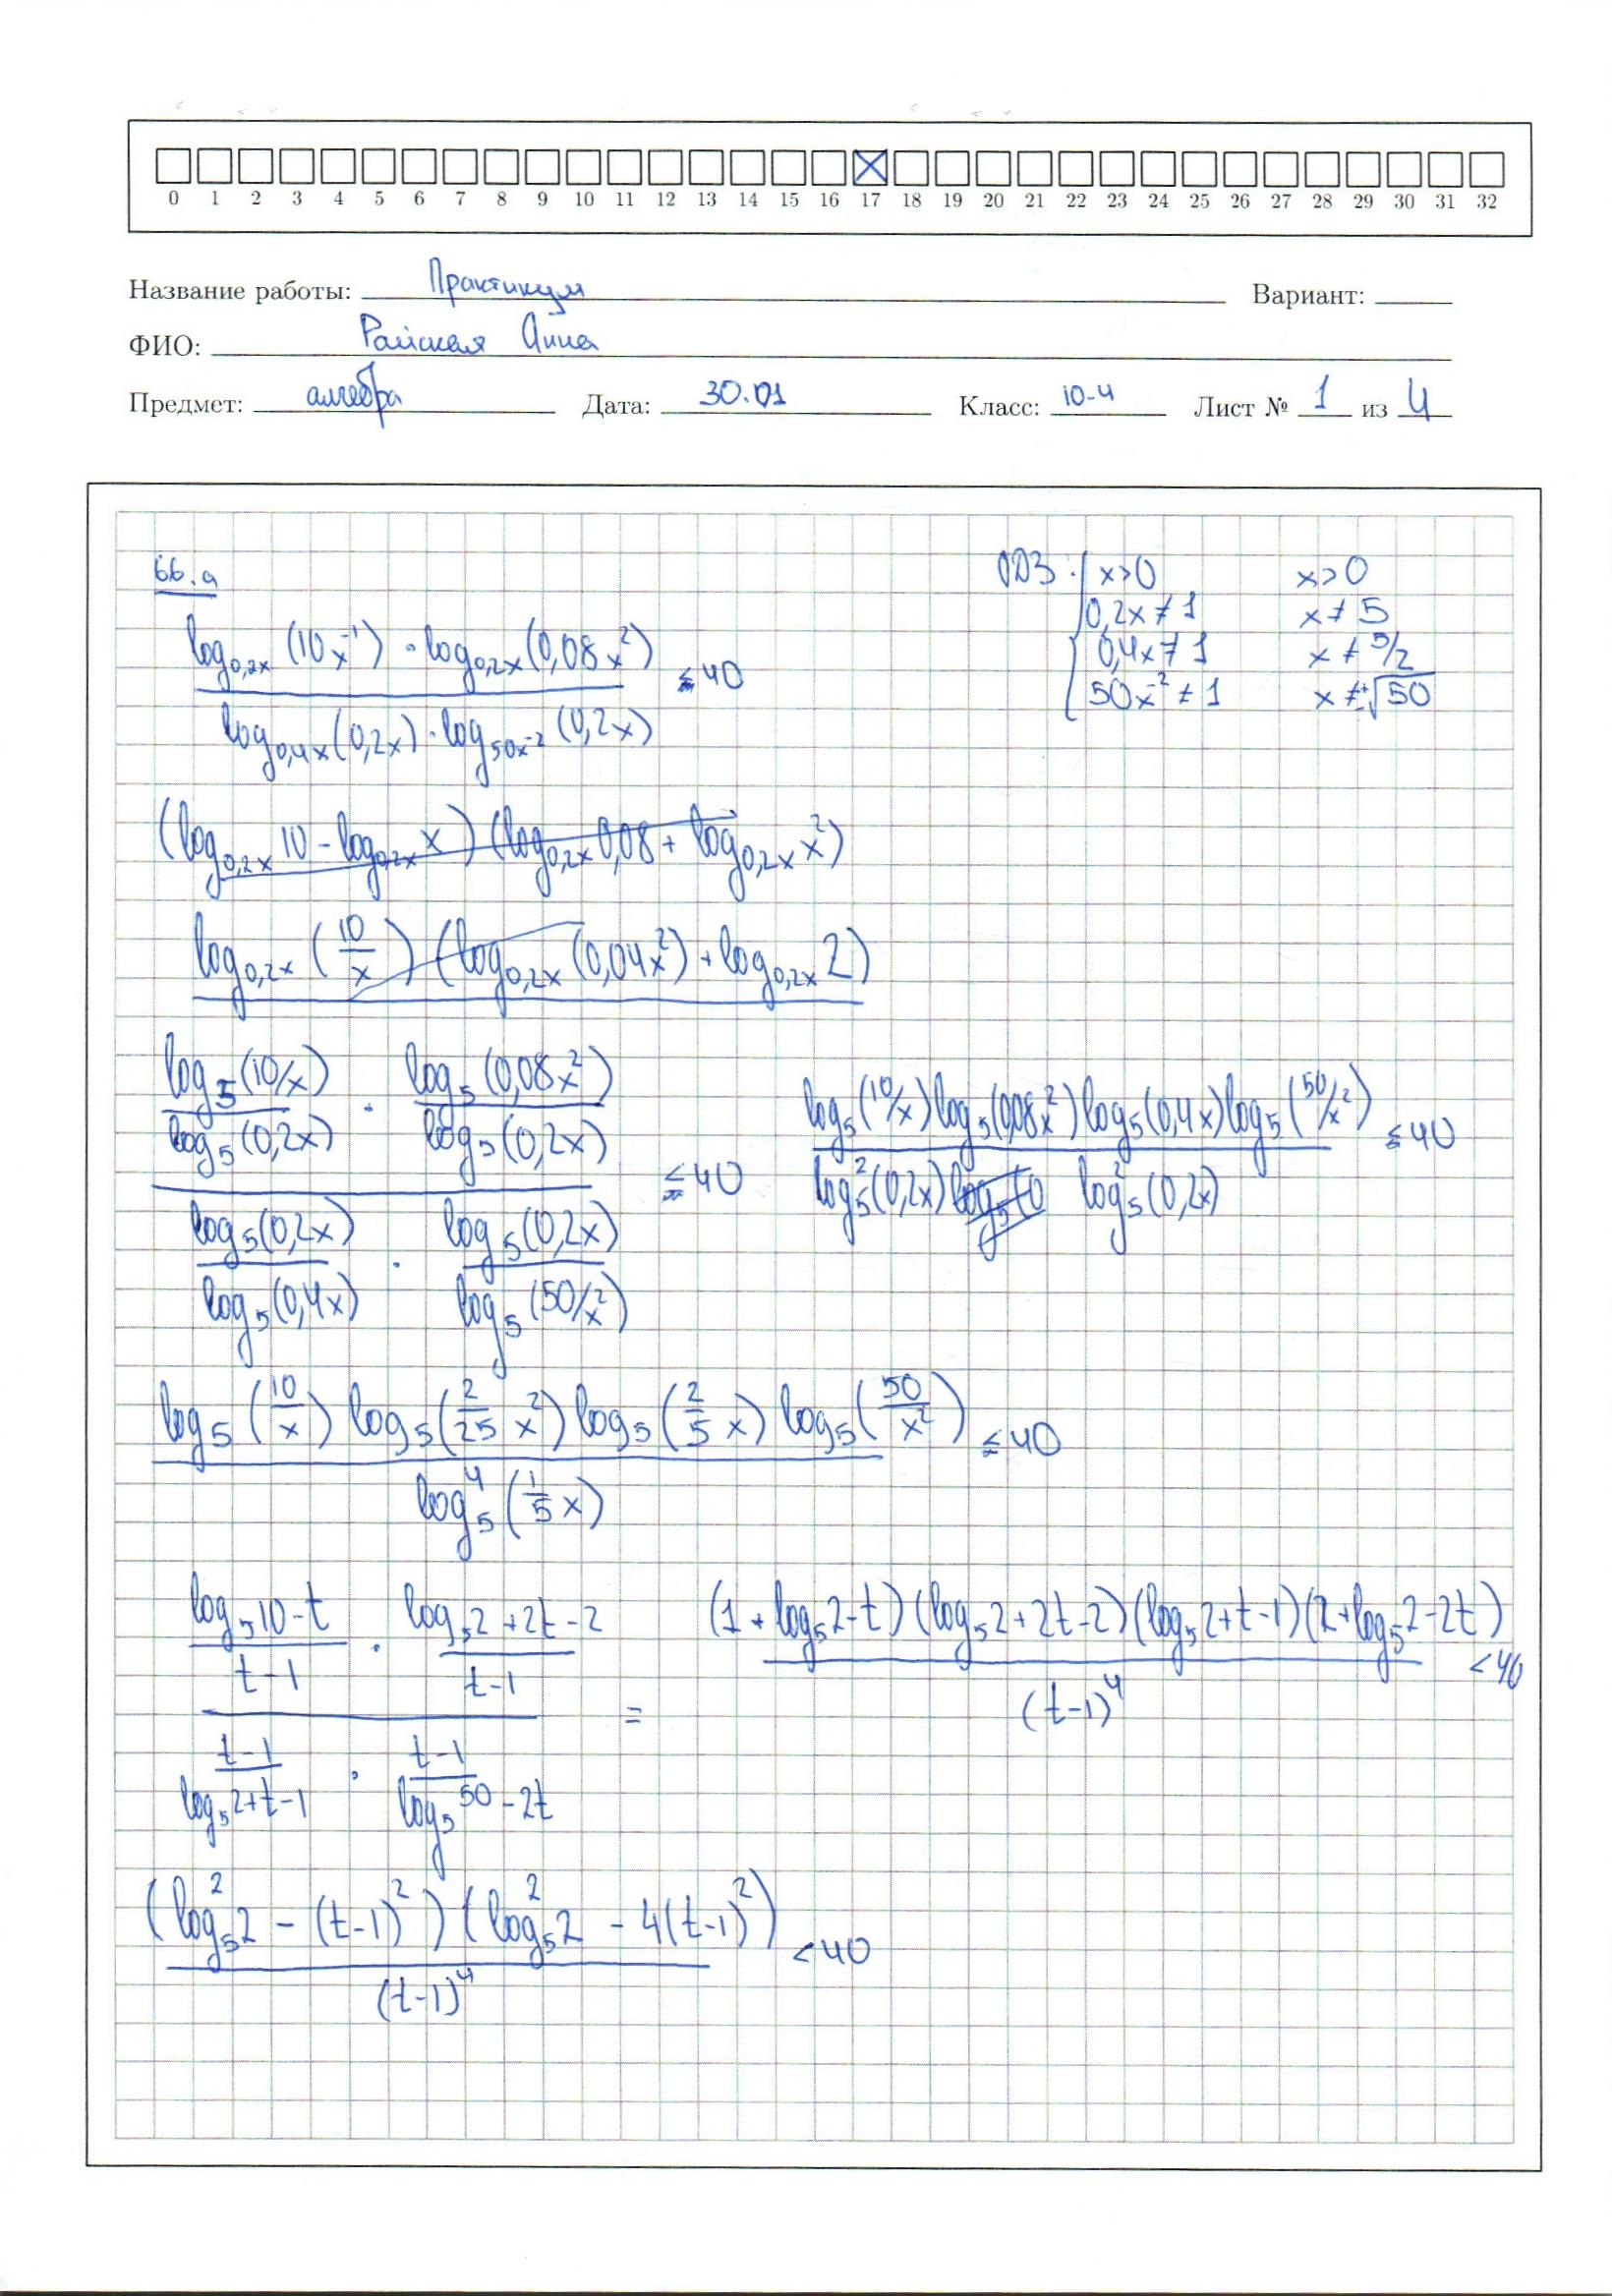 0 1 2 3 4 5 6 7 8 9 10 11 12 13 14 15 16 17 18 19 20 21 22 23 24 25 26 27 28 29 30 31 32
Название работы: Практикум Вариант:
ФИО: Райская Анна
Предмет: алгебра Дата: 30.01 Класс: 10-4 Лист № 1 из 4
66.а
ОДЗ: { x>0 x>0
0,2x≠1 x≠5
0,4x≠1 x≠5/2
50x⁻²≠1 x≠±√50
log₀,₂ₓ(10x⁻¹) · log₀,₂ₓ(0,08x²)
≤40
log₀,₄ₓ(0,2x) · log₅₀ₓ₋₂(0,2x)
(log₀,₂ₓ10 - log₀,₂ₓx)(log₀,₂ₓ0,08 + log₀,₂ₓx²)
log₀,₂ₓ(10/x)(log₀,₂ₓ(0,04x²) + log₀,₂ₓ2)
log₅(10/x) · log₅(0,08x²)
log₅(0,2x) log₅(0,2x)
≤40
log₅(0,2x) · log₅(0,2x)
log₅(0,4x) log₅(50/x²)
log₅(10/x)log₅(0,08x²)log₅(0,4x)log₅(50/x²) ≤40
log₅²(0,2x) log₅(0 log₅²(0,2x)
log₅(10/x) log₅(2/25 x²) log₅(2/5 x) log₅(50/x²) ≤40
log₅⁴(1/5 x)
log₅10-t · log₅2+2t-2
t-1 t-1
=
t-1 · t-1
log₅2+t-1 log₅50-2t
(1+log₅2-t)(log₅2+2t-2)(log₅2+t-1)(2+log₅2-2t) <40
(t-1)⁴
(log₅²2 - (t-1)²)(log₅²2 - 4(t-1)²) <40
(t-1)⁴